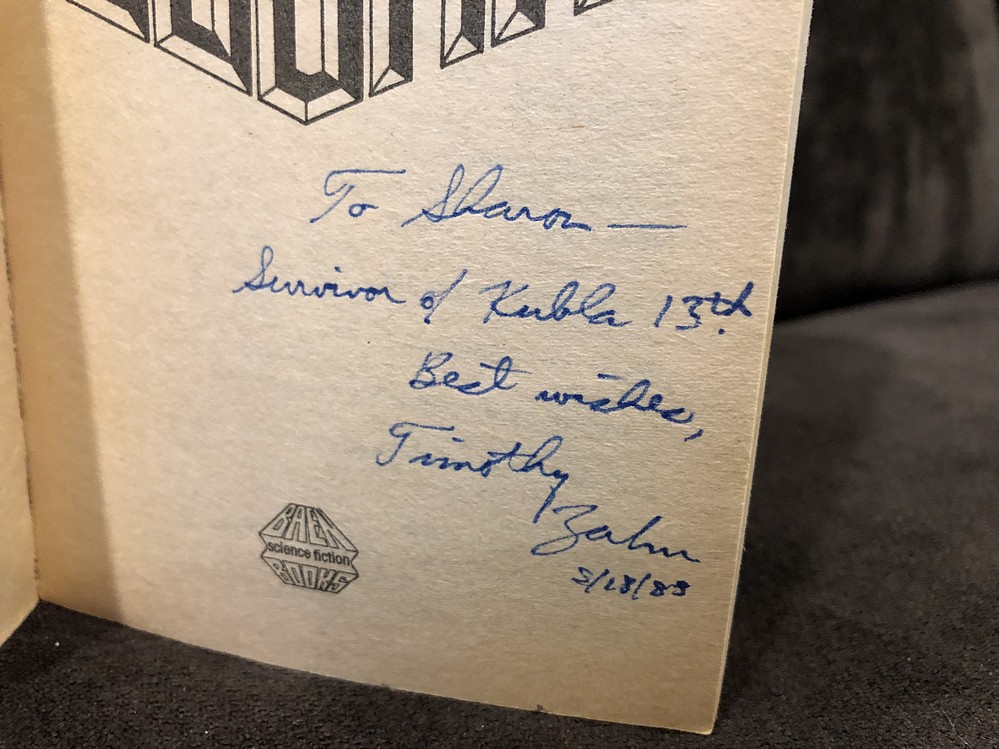 To Sharon —
Survivor of Kubla 13th.
Best wishes,
Timothy
Zahn
BAEN
science fiction
BOOKS